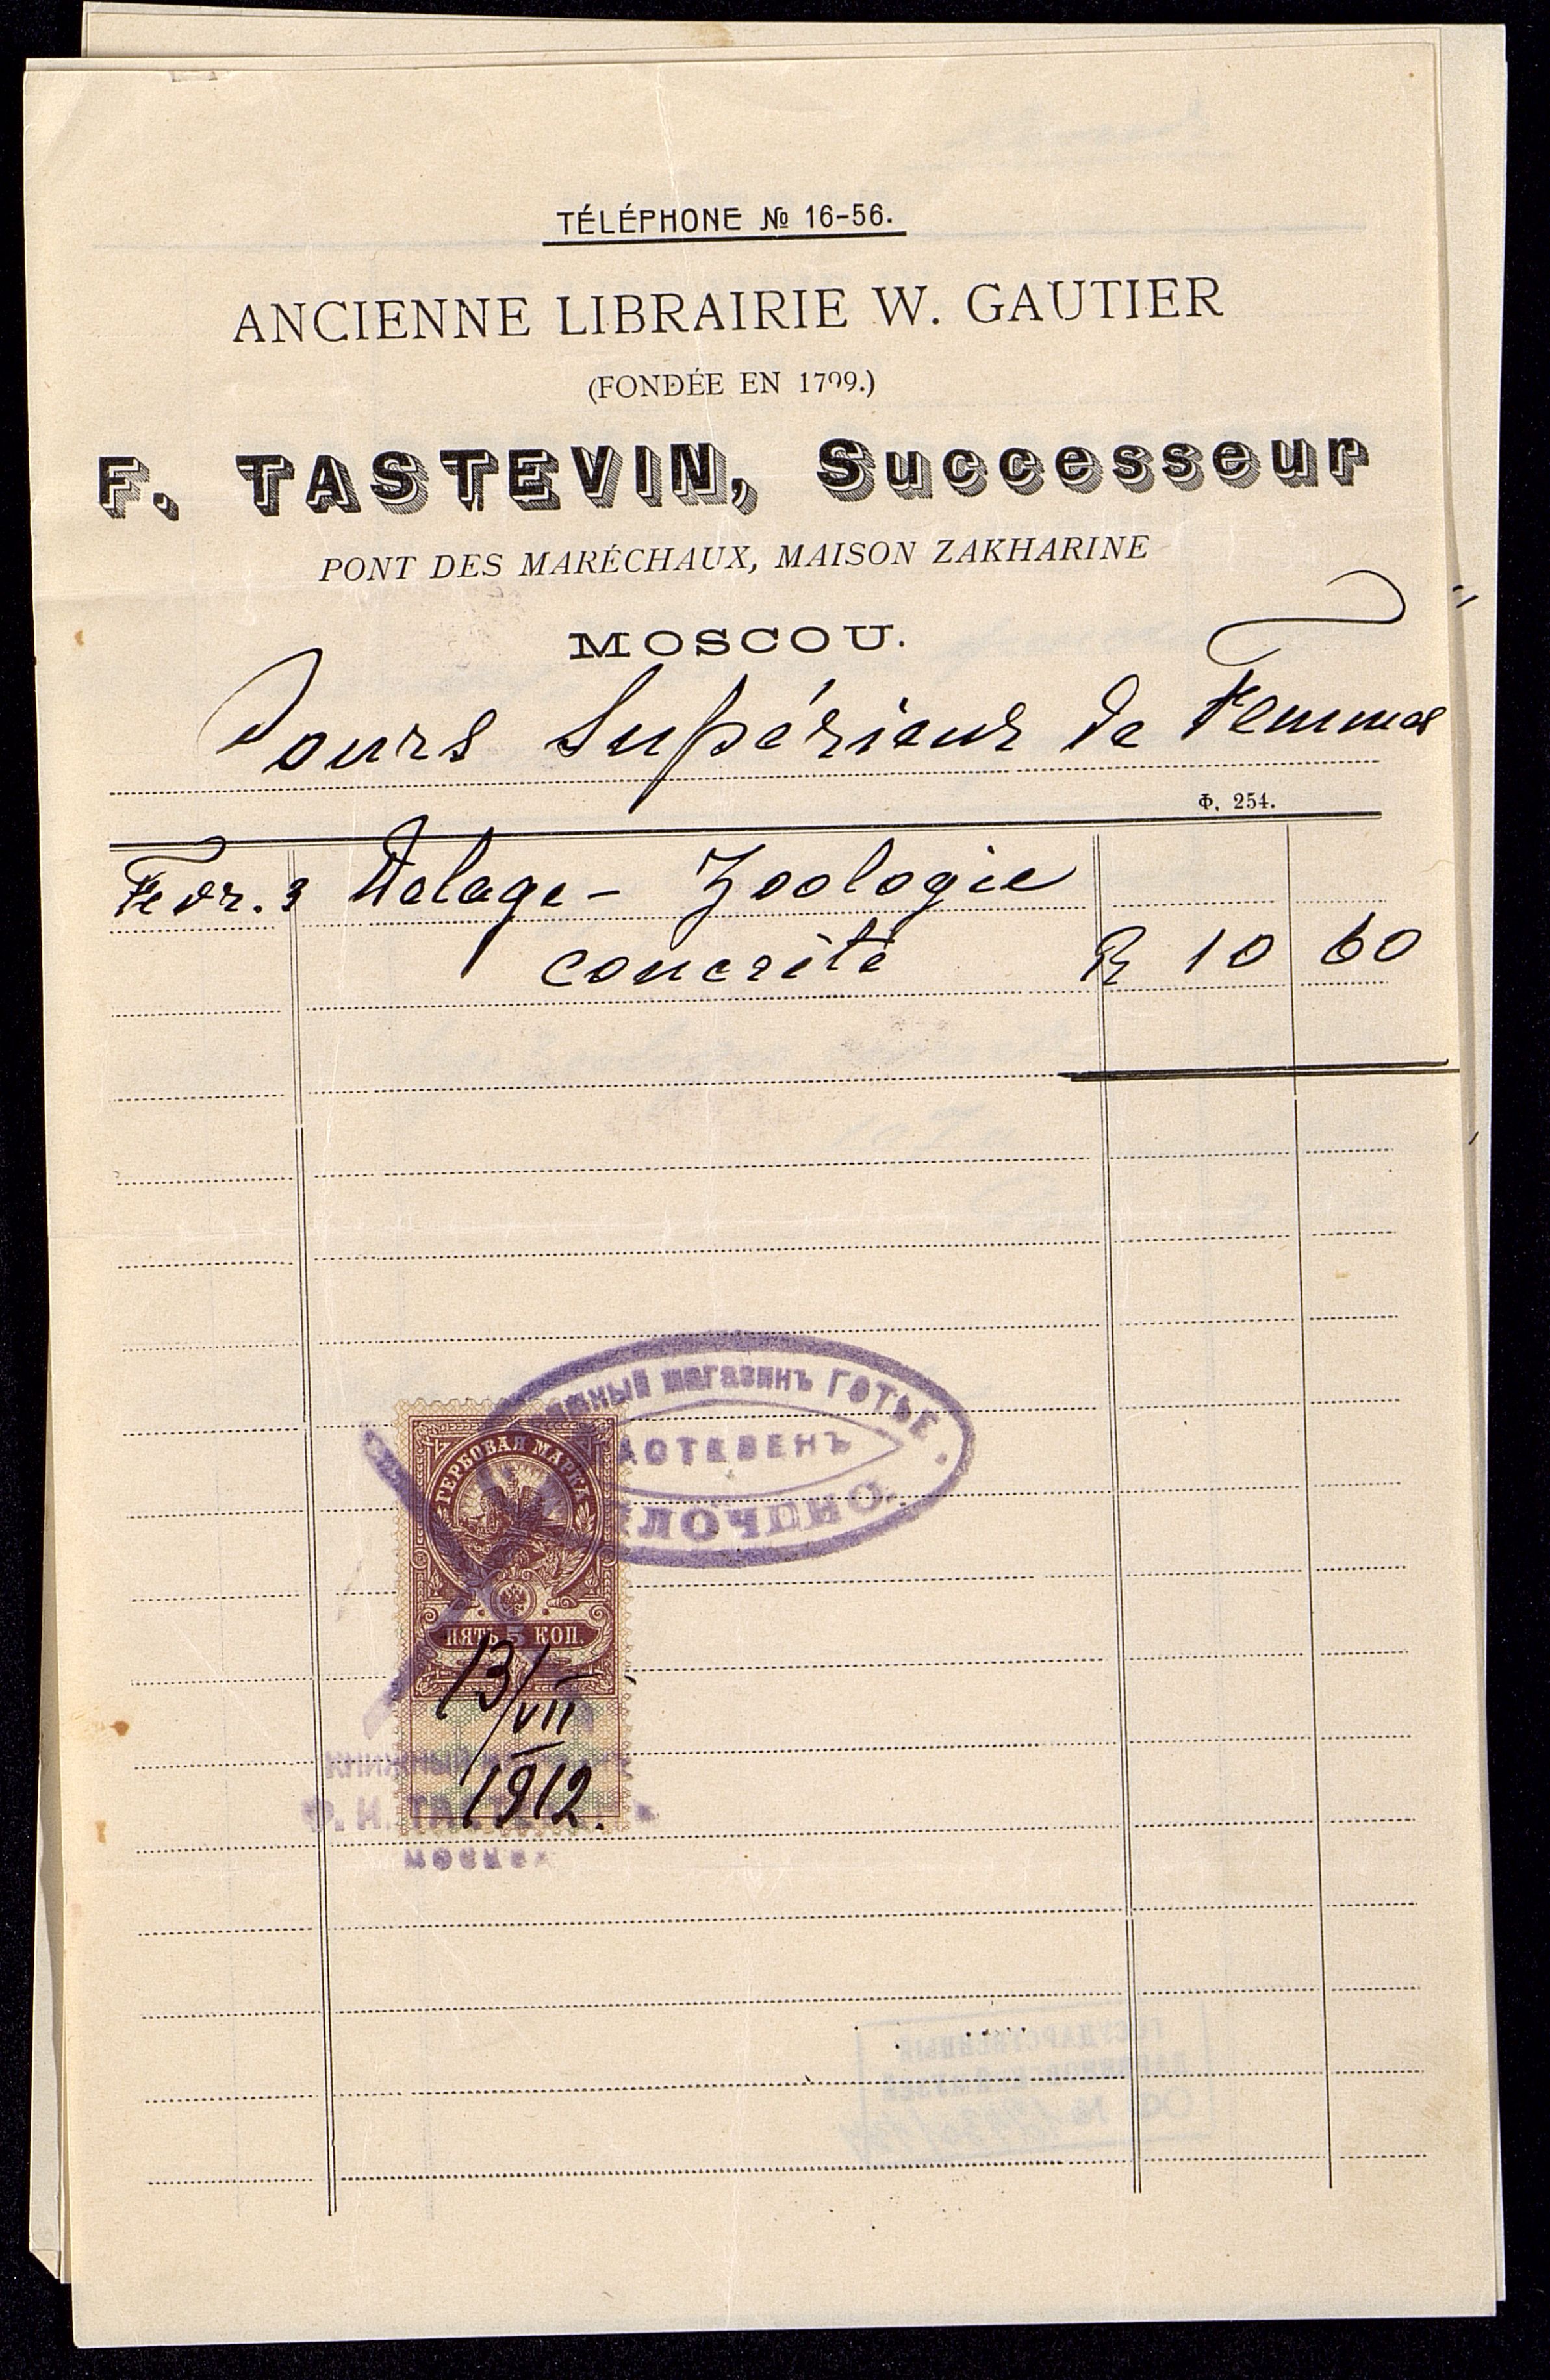 TÉLÉPHONE № 16-56.
ANCIENNE LIBRAIRIE W. GAUTIER
(FONDÉE EN 1799.)
F. TASTEVIN, Successeur
PONT DES MARÉCHAUX, MAISON ZAKHARINE
MOSCOU.
Cours Supérieur de Femmes
Ф. 254.
Fevr. 3 Delage - Zoologie
concrète R 10 60
магазинъ ГОТЬЕ.
ТАСТЕВЕНЪ
ГЕРБОВАЯ МАРКА
ПЯТЬ 5 КОП.
13/VII
1912.
КНИЖНЫЙ
Ф. И. ТАСТЕ
МОСКВА